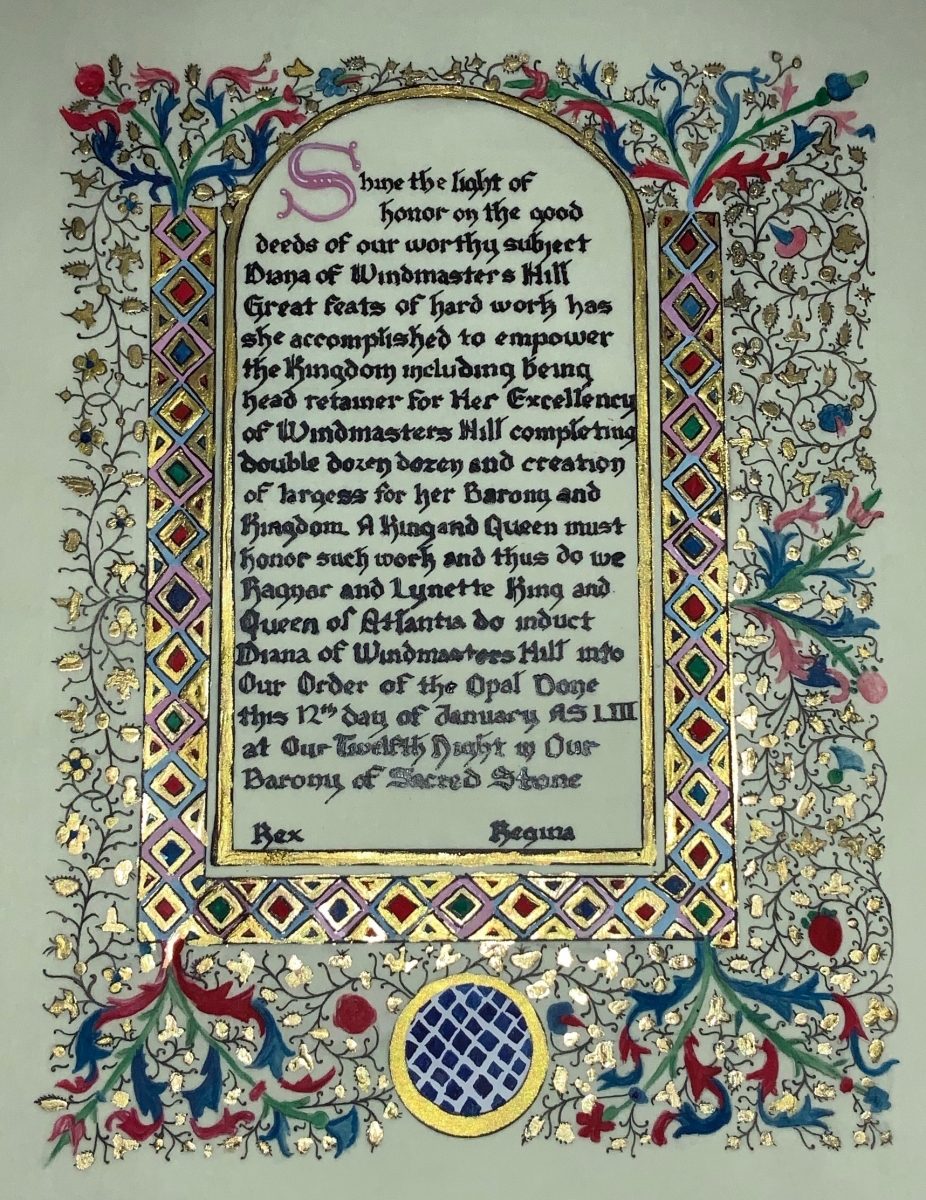 Shine the light of
honor on the good
deeds of our worthy subject
Diana of Windmasters Hill
Great feats of hard work has
she accomplished to empower
the Kingdom including being
head retainer for Her Excellency
of Windmasters Hill completing
double dozen dozen and creation
of largess for her Barony and
Kingdom. A King and Queen must
honor such work and thus do we
Ragnar and Lynette King and
Queen of Atlantia do induct
Diana of Windmasters Hill into
Our Order of the Opal Done
this 12th day of January AS LIII
at Our Twelfth Night in Our
Barony of Sacred Stone
Rex Regina